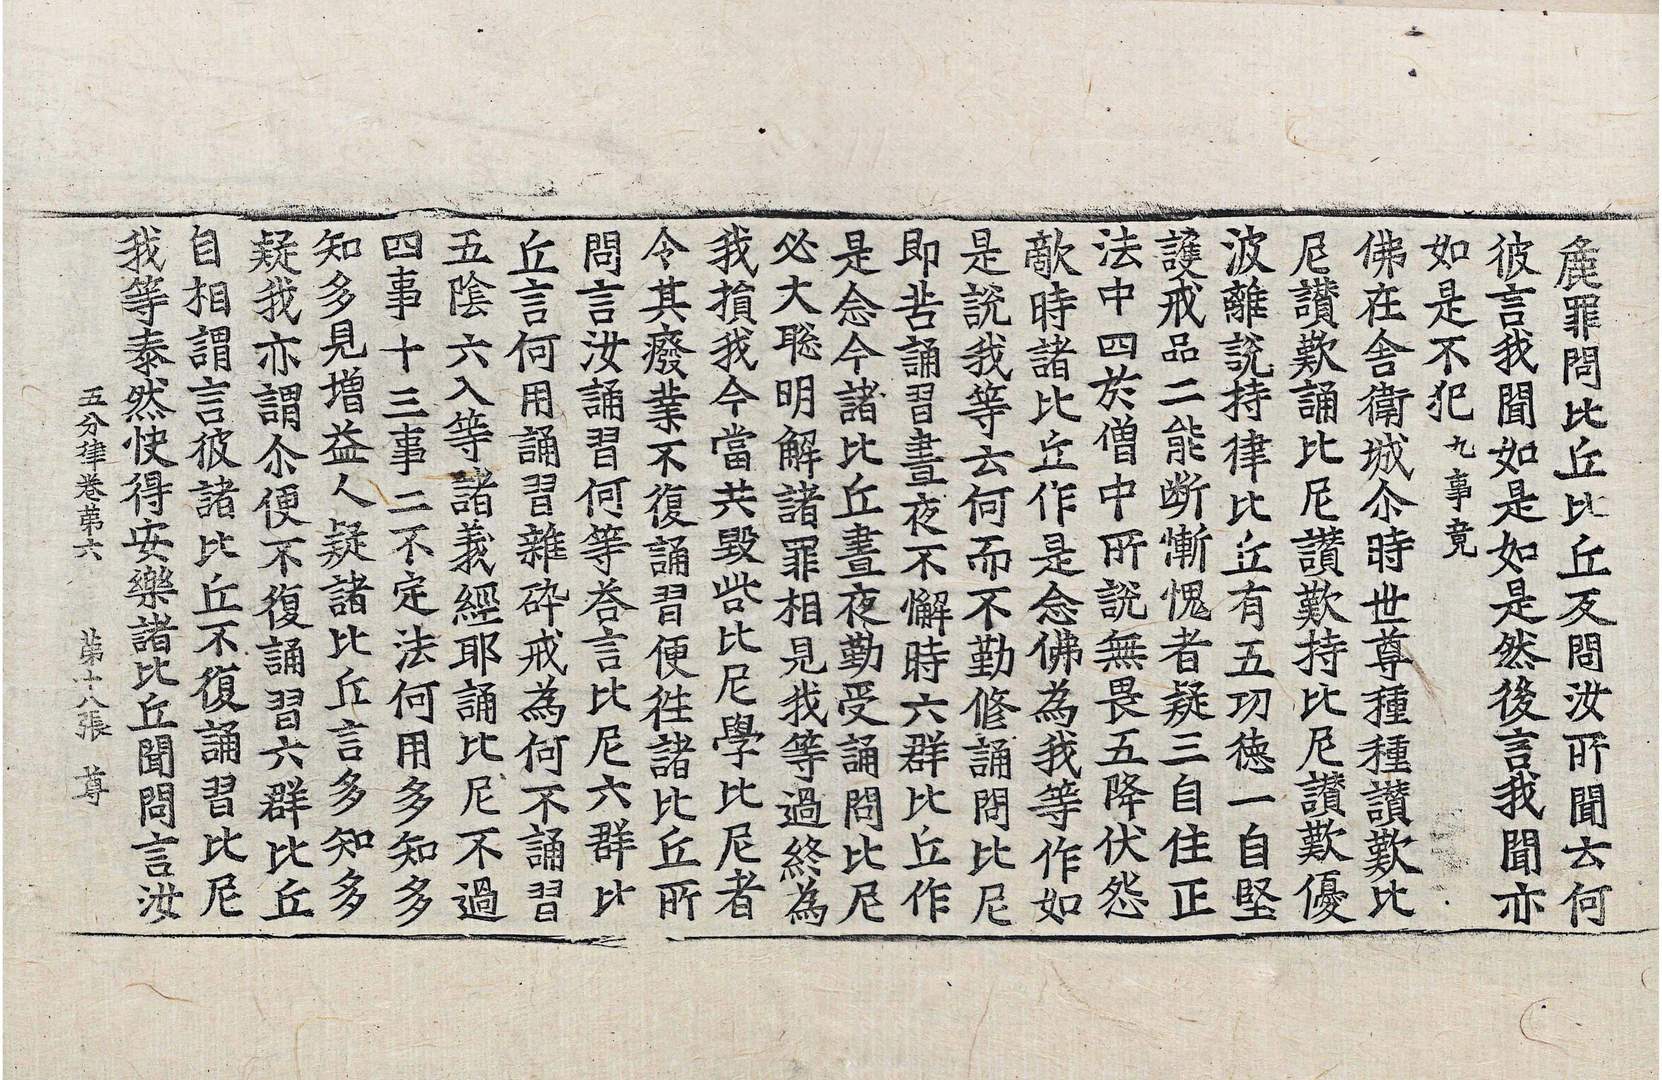 麁罪問比丘比丘及問汝所聞云何
彼言我聞如是如是然後言我聞亦
如是不犯 九事竟
佛在舍衛城尒時世尊種種讃歎比
尼讃歎誦比尼讃歎持比尼讃歎優
波離說持律比丘有五功德一自堅
護戒品二能断慚愧者疑三自住正
法中四於僧中所說無畏五降伏怨
敵時諸比丘作是念佛為我等作如
是說我等云何而不勤修誦問比尼
即昔誦習晝夜不懈時六群比丘作
是念今諸比丘晝夜勤受誦問比尼
必大聡明解諸罪相見我等過終為
我損我今當共毀呰比尼學比尼者
令其廢業不復誦習便徃諸比丘所
問言汝誦習何等荅言比尼六群比
丘言何用誦習雜碎戒為何不誦習
五陰六入等諸義經耶誦比尼不過
四事十三事二不定法何用多知多
知多見增益人疑諸比丘言多知多
疑我亦謂尒便不復誦習六群比丘
自相謂言彼諸比丘不復誦習比尼
我等泰然快得安樂諸比丘聞問言汝
五分律卷苐六 苐十八張 尊